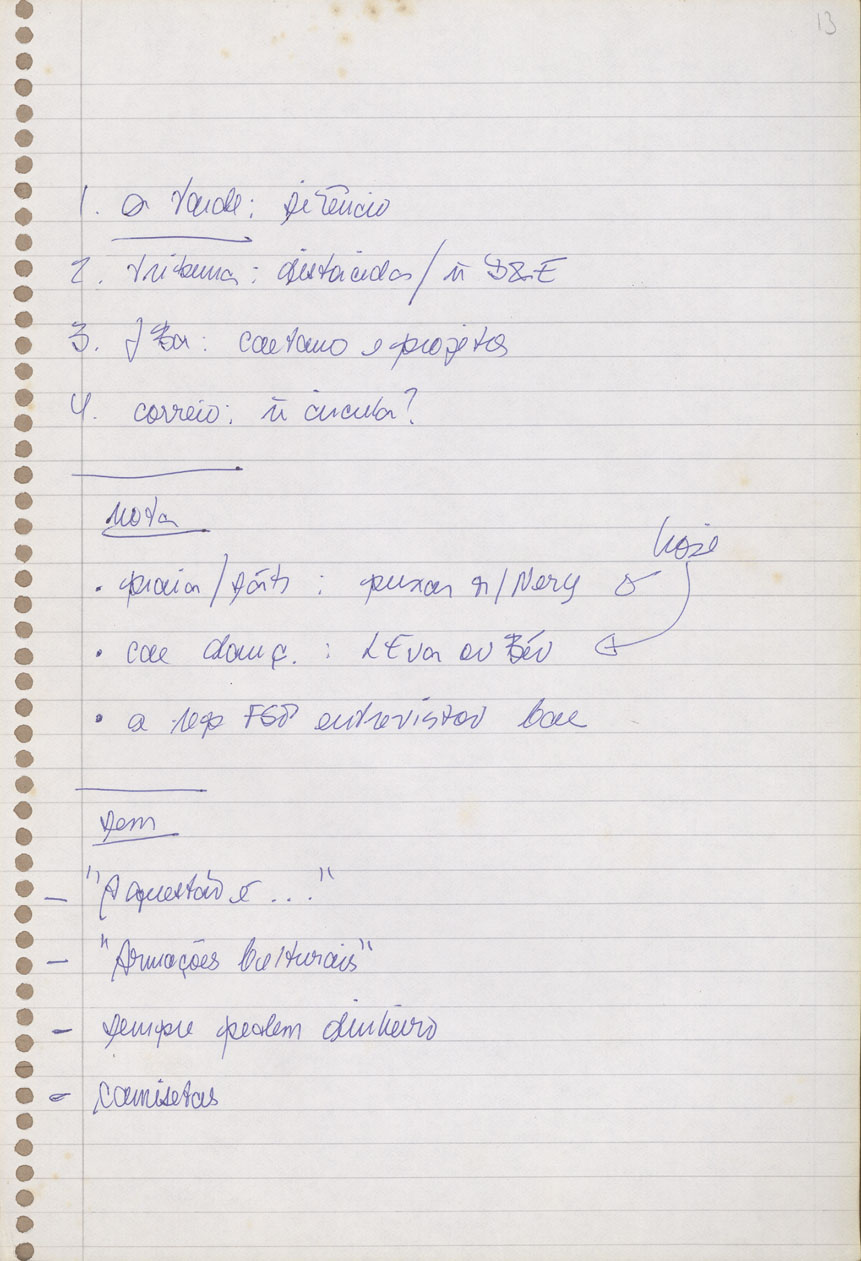 13
1. a tarde: silêncio
2. tribuna: distorcidas / ñ D&E
3. JBa: caetano e projetos
4. correio: ñ circula?
nota
hoje
• praia / : puxar p/ Nery
• cae danç. : LEva ao
• a rep FSP entrevistou
sem
— "A questão é ..."
— "Armações Culturais"
— sempre pedem dinheiro
— camisetas